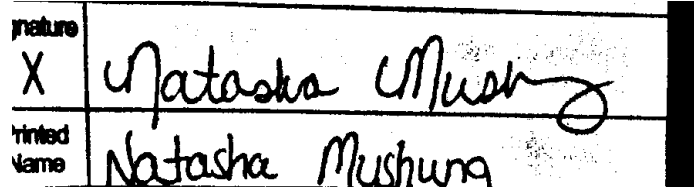 gnature
X Natasha Mushung
Printed
Name Natasha Mushung